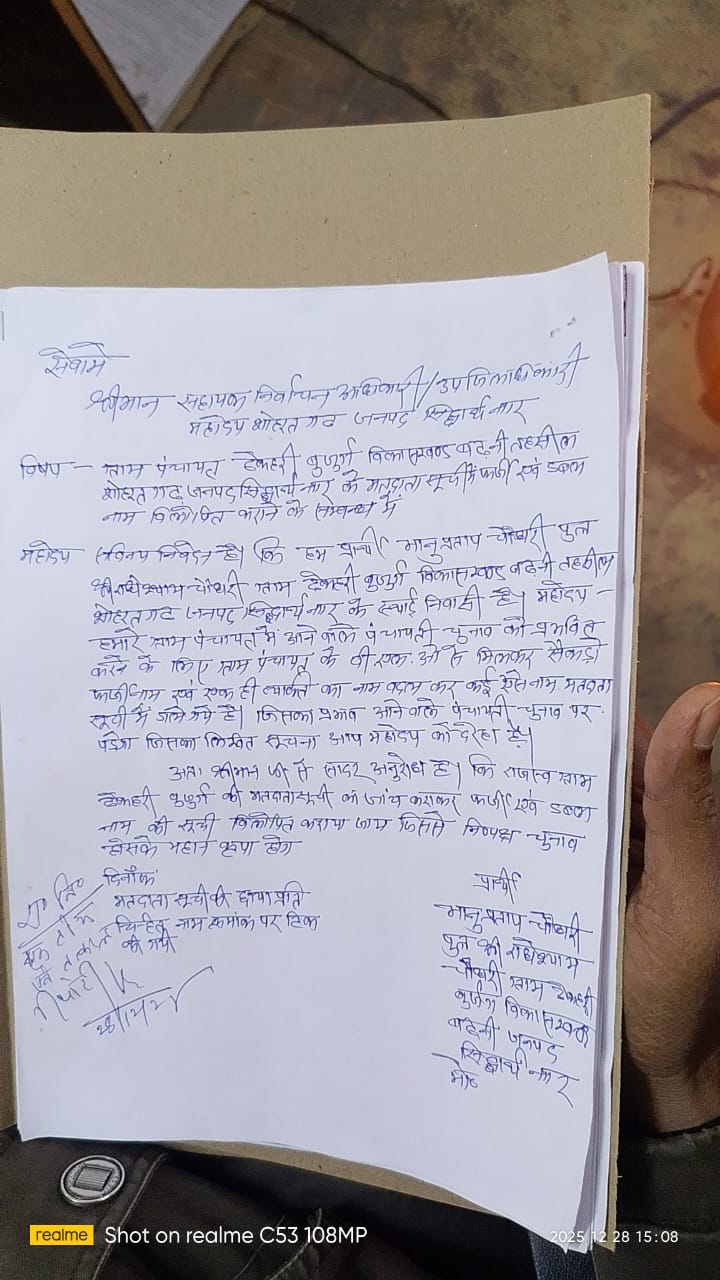 सेवामे
श्रीमान सहायक निर्वाचन अधिकारी/उपजिलाधिकारी
महोदय शोहरतगढ जनपद सिद्धार्थ नगर
विषय - ग्राम पंचायत ढेकहरी बुजुर्ग विकासखण्ड बढ़नी तहसील
शोहरतगढ़ जनपद सिद्धार्थ नगर के मतदाता सूची में फर्जी एवं डबल
नाम विलोपित कराने के सम्बन्ध में
महोदय सविनय निवेदन है। कि हम प्रार्थी भानुप्रताप चौधरी पुत्र
श्री राधेश्याम चौधरी ग्राम ढेकहरी बुजुर्ग विकासखण्ड बढ़नी तहसील
शोहरतगढ जनपद सिद्धार्थ नगर के स्थाई निवासी है। महोदय -
हमारे ग्राम पंचायत में आने वाले पंचायती चुनाव को प्रभवित
करने के लिए ग्राम पंचायत के बी एल. ओ से मिलकर सैकड़ो
फर्जी नाम एवं एक ही व्यक्ति का नाम बदल कर कई ऐसे नाम मतदाता
सूची में डाले गये है। जिसका प्रभाव आने वाले पंचायती चुनाव पर
पडेगा जिसका लिखित सूचना आप महोदय को दे रहा है।
अतः श्रीमान जी से सादर अनुरोध है। कि राजस्व ग्राम
ढेकहरी बुजुर्ग की मतदाता सूची की जांच कराकर फर्जी एवं डबल
नाम की सूची विलोपित कराया जाय जिससे निष्पक्ष चुनाव
होसके महान कृपा होग
दिनाँक
मतदाता सूची की छाया प्रति
चिन्हित नाम क्रमांक पर टिक
की गयी
प्रार्थी
भानुप्रताप चौधरी
पुत्र श्री राधेश्याम
चौधरी ग्राम ढेकहरी
बुर्जुग विकासखण्ड
बढनी जनपद
सिद्धार्थ नगर
मो०
realme Shot on realme C53 108MP
2025 12 28 15:08